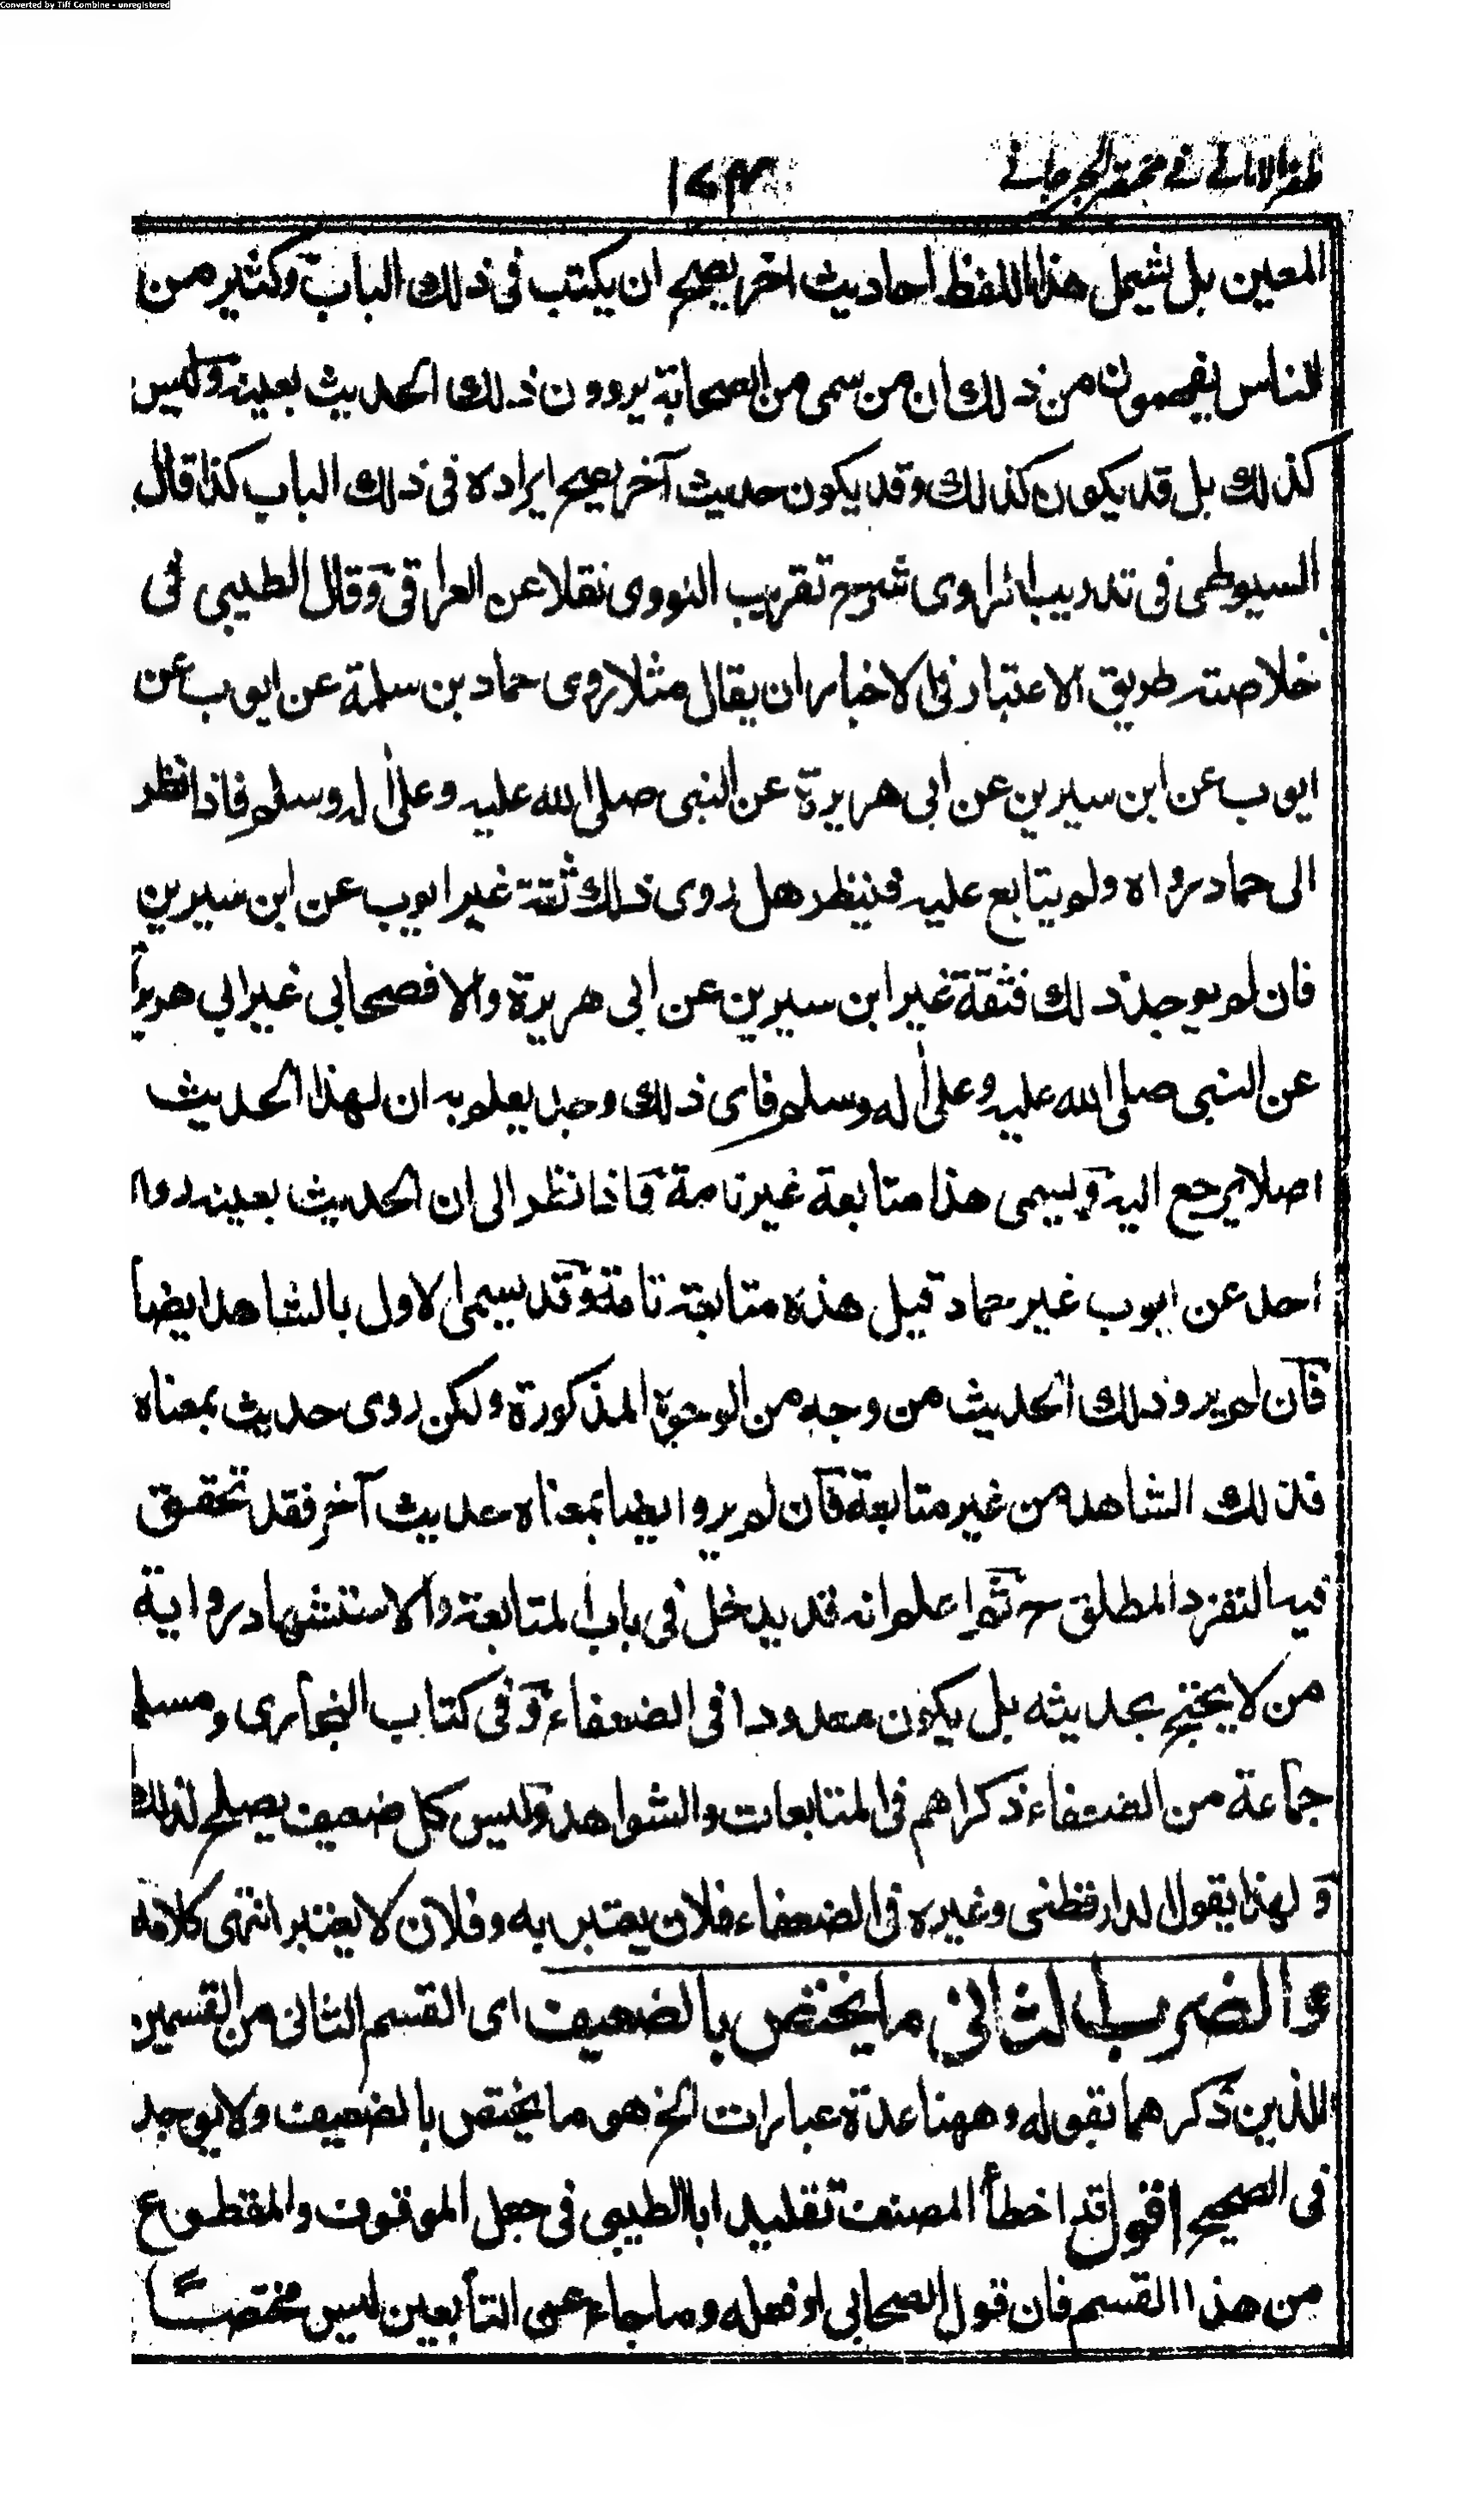 Converted by Tiff Combine - unregistered
ظفر الامانی فی مختصر الجرجانی
المعین بل یشمل هذا اللفظ احادیث اخر یصح ان یکتب فی ذلك الباب وکثیر من
الناس یفهمون من ذلك ان من سمی من الصحابة یروون ذلك الحدیث بعینه ولیس
کذلك بل قد یکون کذلك وقد یکون حدیث آخر یصح ایراده فی ذلك الباب کذا قال
السیوطی فی تدریب الراوی شرح تقریب النووی نقلا عن العراقی وقال الطیبی فی
خلاصته طریق الاعتبار فی الاخبار ان یقال مثلا روی حماد بن سلمة عن ایوب عن
ایوب عن ابن سیرین عن ابی هریرة عن النبی صلی الله علیه وعلی اله وسلم فاذا نظر
الی حماد رواه ولم یتابع علیه فینظر هل روی ذلك ثقة غیر ایوب عن ابن سیرین
فان لم یوجد ذلك فثقة غیر ابن سیرین عن ابی هریرة والا فصحابی غیر ابی هریرة
عن النبی صلی الله علیه وعلی اله وسلم فای ذلك وجد یعلم به ان لهذا الحدیث
اصلا یرجع الیه ویسمی هذا متابعة غیر تامة فاذا نظر الی ان الحدیث بعینه رواه
احد عن ایوب غیر حماد قیل هذه متابعة تامة وقد یسمی الاول بالشاهد ایضا
فان لم یرو ذلك الحدیث من وجه من الوجوه المذکورة ولکن روی حدیث بمعناه
فذلك الشاهد من غیر متابعة فان لم یرو ایضا بمعناه حدیث آخر فقد تحقق
فیه التفرد المطلق ح ثم اعلم انه قد یدخل فی باب المتابعة والاستشهاد روایة
من لا یحتج بحدیثه بل یکون معدودا فی الضعفاء وفی کتاب البخاری ومسلم
جماعة من الضعفاء ذکراهم فی المتابعات والشواهد ولیس کل ضعیف یصلح لذلك
ولهذا یقول الدارقطنی وغیره فی الضعفاء فلان یعتبر به وفلان لا یعتبر انتهی کلامه
والضرب الثانی ما یختص بالضعیف ای القسم الثانی من القسمین
اللذین ذکرهما بقوله وههنا عدة عبارات الخ هو ما یختص بالضعیف ولا یوجد
فی الصحیح اقول قد اخطأ المصنف تقلیدا بالطیبی فی جعل الموقوف والمقطوع
من هذا القسم فان قول الصحابی او فعله وما جاء عن التابعین لیس مختصًا